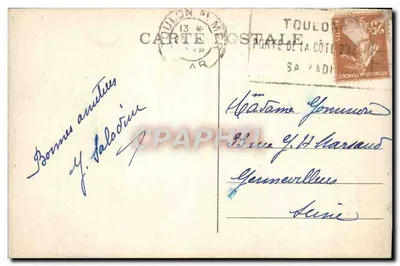 TOULON S/ MER
13 *
VAR
TOULON
PORTE DE LA CÔTE D'AZUR
SA RADE
25c
CARTE POSTALE
Bonnes amitiés
Y. Salsdun
Madame
33 rue J H Marsaud
Gennevilliers
Seine